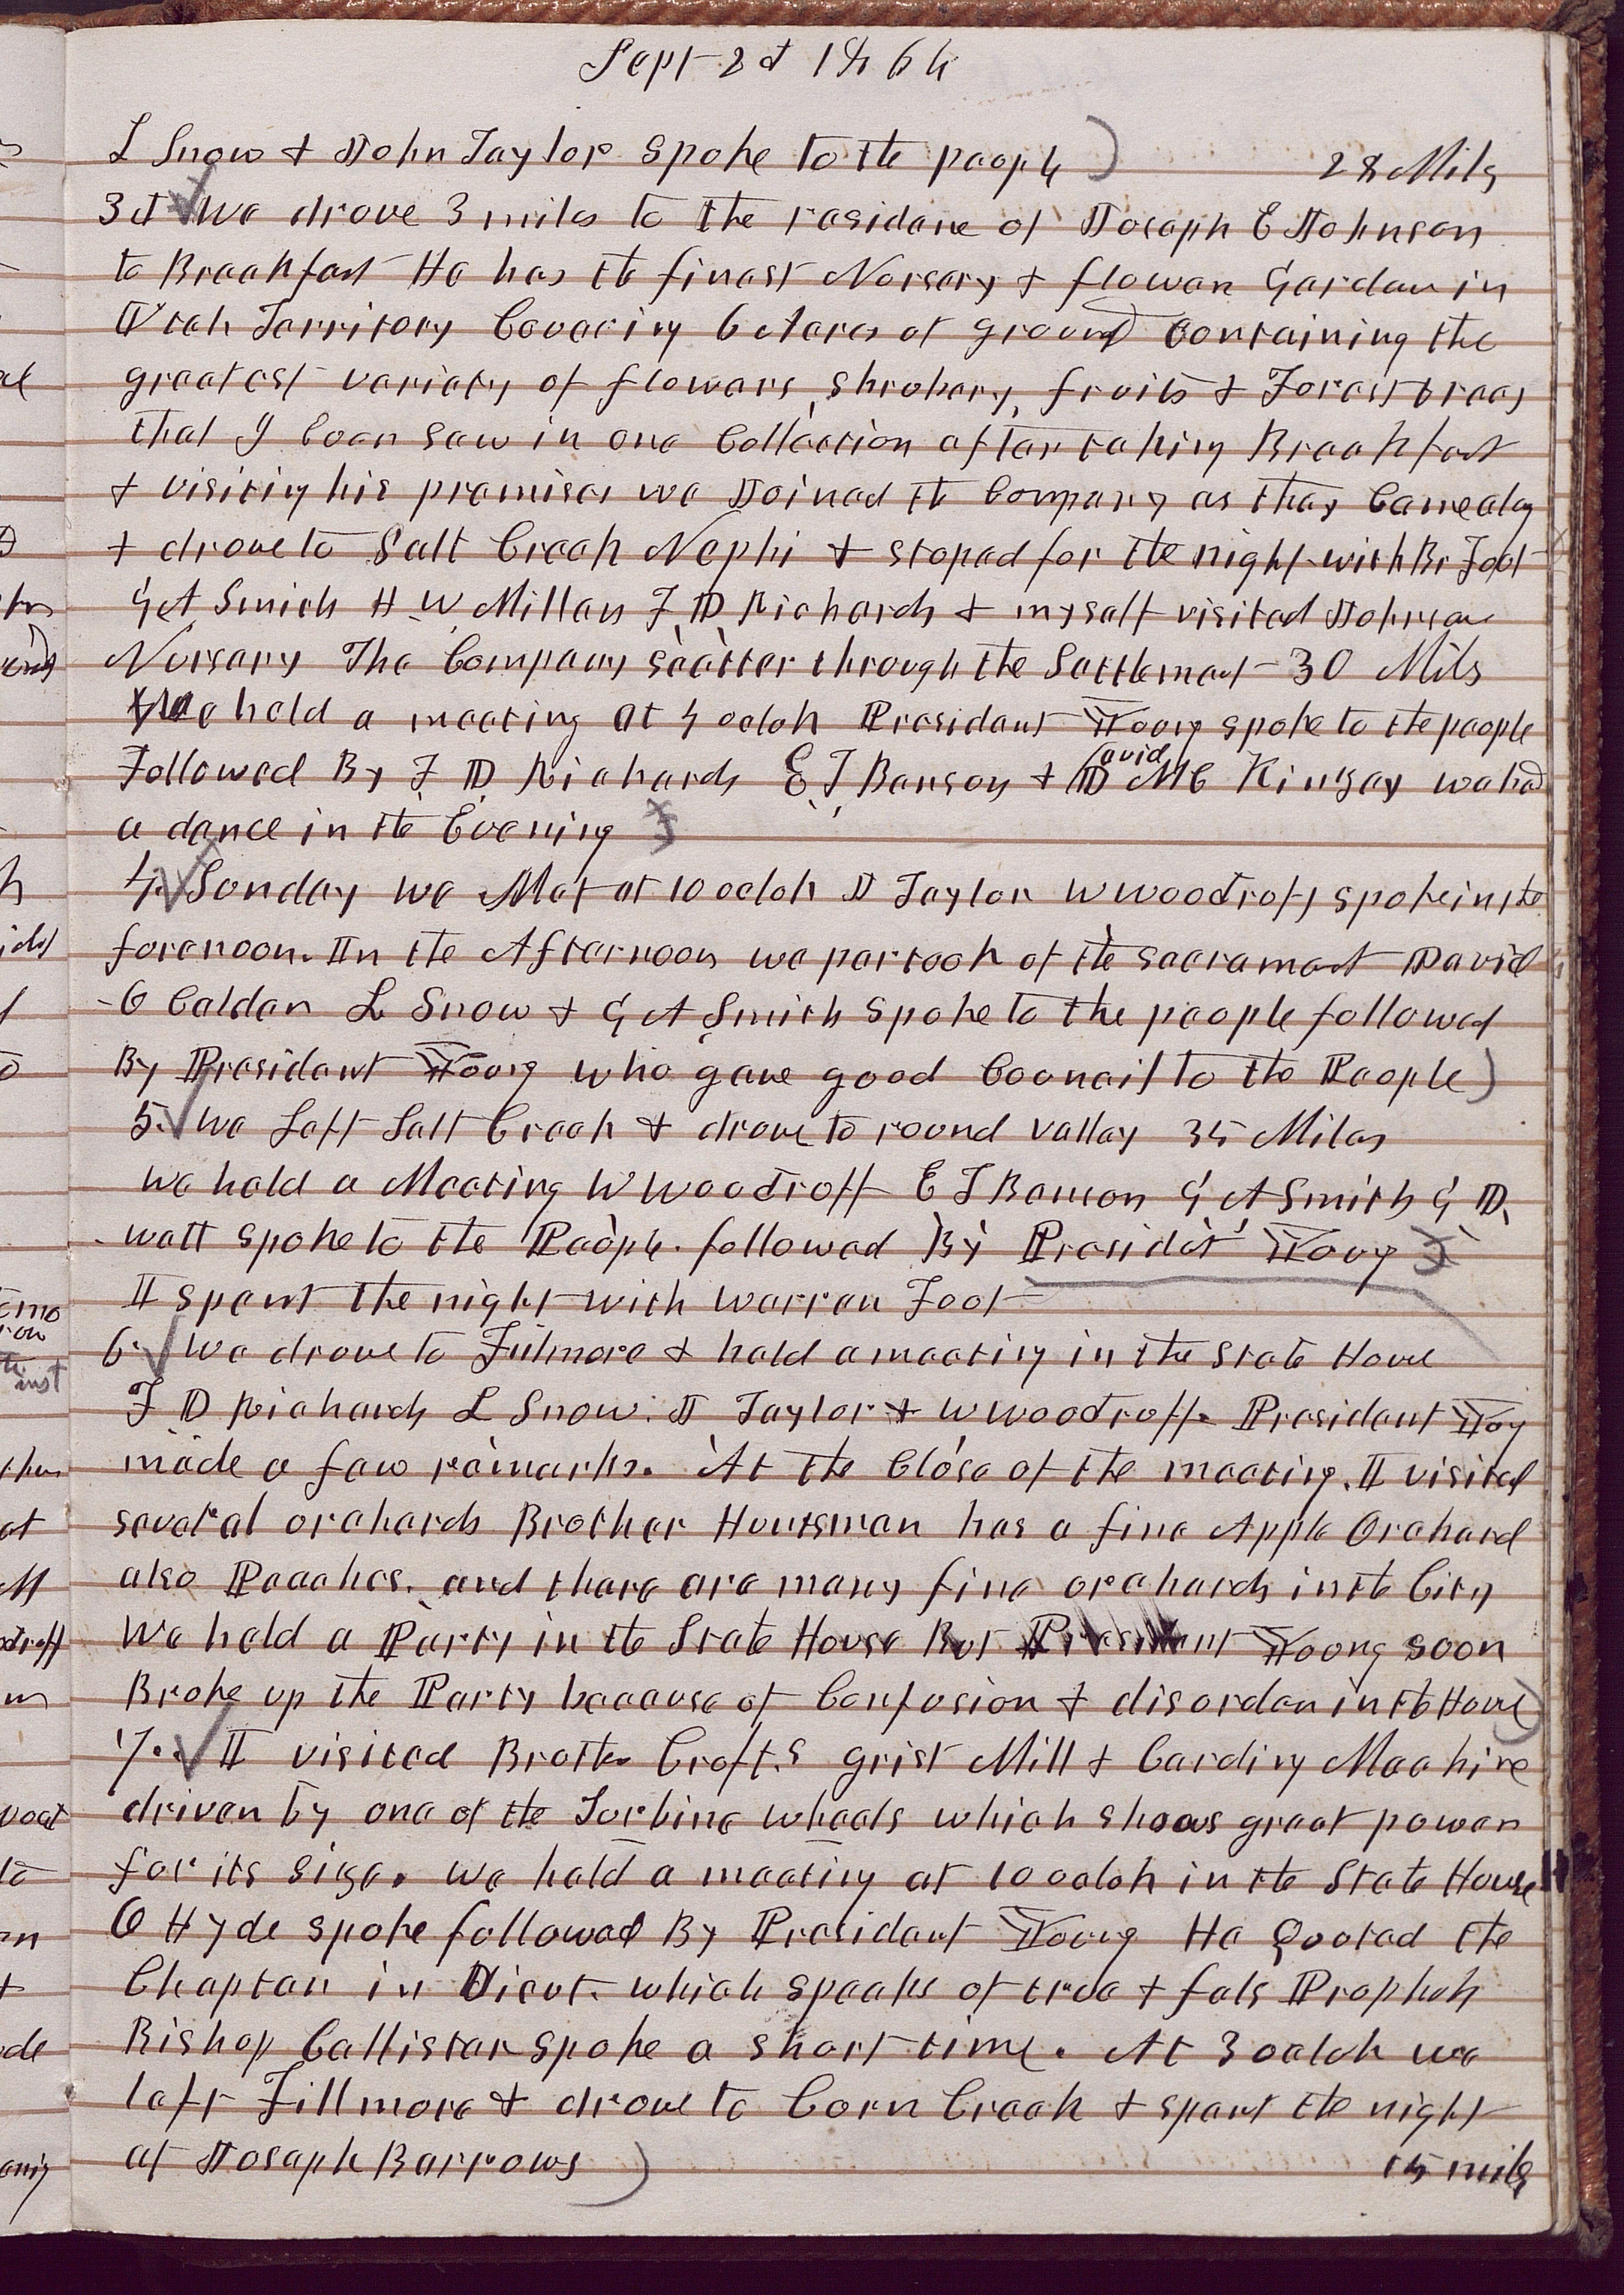 Sept 2d 1864
L Snow & John Taylor spoke to the people) 28 Miles
3d We drove 3 miles to the residence of Joseph E Johnson
to Breakfast He has the finest Norsery & flower Garden in
Utah Territory Covering 6 Acres of ground Containing the
greatest variety of flowers, shrobery, fruits & Forest trees
that I Ever saw in one Collection after taking Breakfast
& visiting his premises we Joined the Company as they Came along
& drove to Salt Creek Nephi & stoped for the night with Br Foot
G A Smith H W Miller F D Richards & myself visited Johnson
Norsery The Company scatter through the Settlement 30 Miles
We held a meeting at 4 oclok President Young spoke to the people
Followed By F D Richards E T Benson & David Mc Kinzey we had
a dance in the Evening
4. Sonday we Met at 10 oclok J Taylor W Woodruff spoke in the
forenoon. In the Afternoon we partook of the sacrament David
O Calder L Snow & G A Smith spoke to the people followed
By President Young who gave good Councill to the People)
5. We Left Salt Creek & drove to round valley 35 Miles
We held a Meeting W Woodruff E T Benson G A Smith G D
watt spoke to the People. followed By Presidet Young
I spent the night with Warren Foot
6. We drove to Filmore & held a meeting in the State House
F D Richards L Snow. J Taylor & W Woodruff. President Young
made a few remarks. At the Close of the meeting. I visited
several orchards Brother Huntsman has a fine Apple Orchard
also Peaches. and there are many fine orchards in the City
We held a Party in the State House But President Young soon
Broke up the Party because of Confusion & disorder in the House)
7. I visited Brother Croft.s grist Mill & Carding Machine
driven by one of the Turbine wheels which shows great power
for its size. we held a meeting at 10 oclok in the State House
O Hyde spoke followed By President Young He Quoted the
Chapter in Dieut. which speaks of true & fals Prophets
Bishop Callister spoke a short time. At 3 oclok we
left Fillmore & drove to Corn Creek & spent the night
at Joseph Barrows) 15 miles